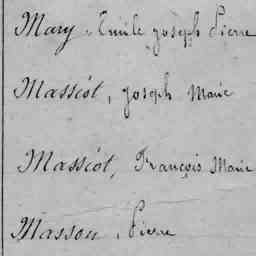 Mary, Emile Joseph Pierre
Massiot, Joseph Marie
Massiot, François Marie
Masson, Pierre